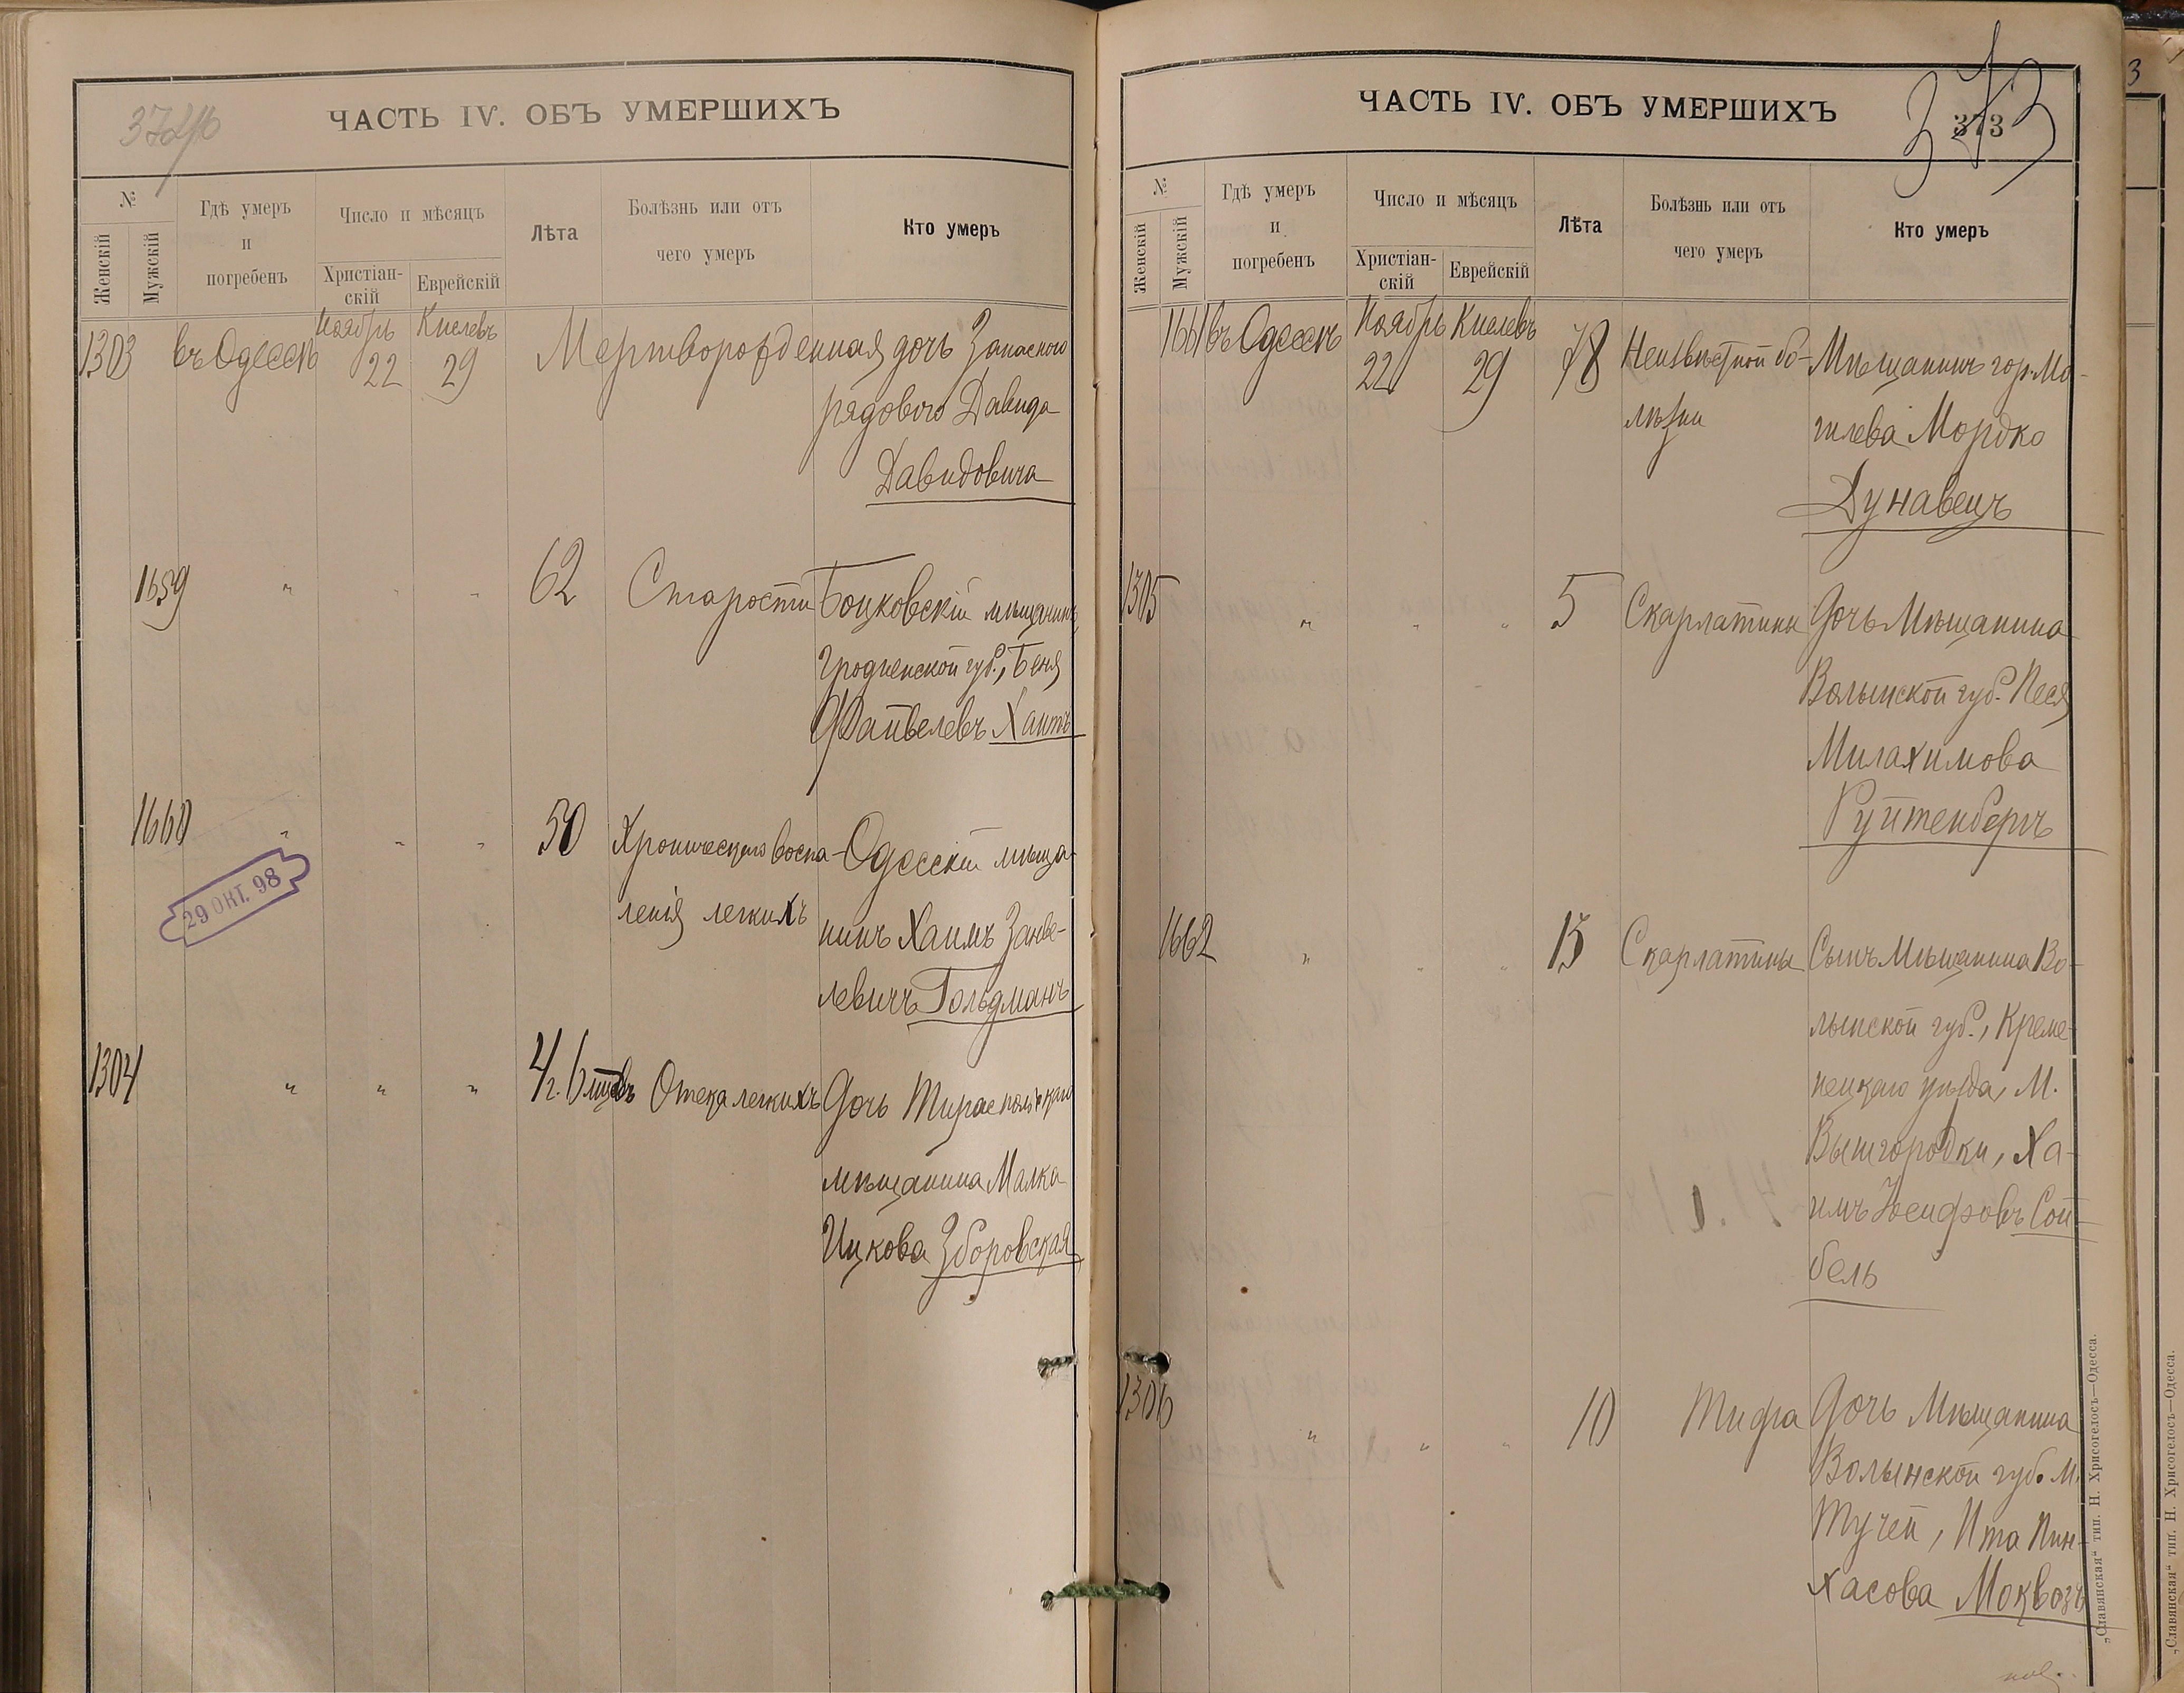 ЧАСТЬ IV. ОБЪ УМЕРШИХЪ
№
Женскій
Мужскій
Гдѣ умеръ
и
погребенъ
Число и мѣсяцъ
Христіан-
скій
Еврейскій
Лѣта
Болѣзнь или отъ
чего умеръ
Кто умеръ
1303 въ Одессѣ Ноябрь 22 Кислевъ 29 Мертворожденная дочь Запасного
рядового Давида
Давидовича
1659 " " " 62 Старости Боцковскій мѣщанинъ,
Гродненской губ., Беня
Файвелевъ Хаитъ
1660 " " " 50 Хроническаго воспа- Одесскій мѣща-
ленія легкихъ нинъ Хаимъ Занве-
левичъ Гольдманъ
29 ОКТ. 98
1304 " " " 4 г. 6 мцевъ Отека легкихъ Дочь Тираспольскаго
мѣщанина Малка
Ицкова Зборовская
ЧАСТЬ IV. ОБЪ УМЕРШИХЪ
373
373
№
Женскій
Мужскій
Гдѣ умеръ
и
погребенъ
Число и мѣсяцъ
Христіан-
скій
Еврейскій
Лѣта
Болѣзнь или отъ
чего умеръ
Кто умеръ
1661 въ Одессѣ Ноябрь 22 Кислевъ 29 78 Неизвѣстной бо- Мѣщанинъ гор. Мо-
лѣзни гилева Мордко
Дунавецъ
1305 " " " 5 Скарлатины Дочь Мѣщанина
Волынской губ. Песя
Милахимова
Руйтенбергъ
1662 " " " Скарлатины Сынъ Мѣщанина Во-
лынской губ., Креме-
нецкаго уѣзда, М.
Вышгородки, Ха-
имъ Іосифовъ Сой-
бель
1306 " " " 10 Тифа Дочь Мѣщанина
Волынской губ. М.
Тучей, Ита Пин-
хасова Моквозъ
„Славянская“ тип. Н. Хрисогелосъ—Одесса.
3
„Славянская“ тип. Н. Хрисогелосъ—Одесса.